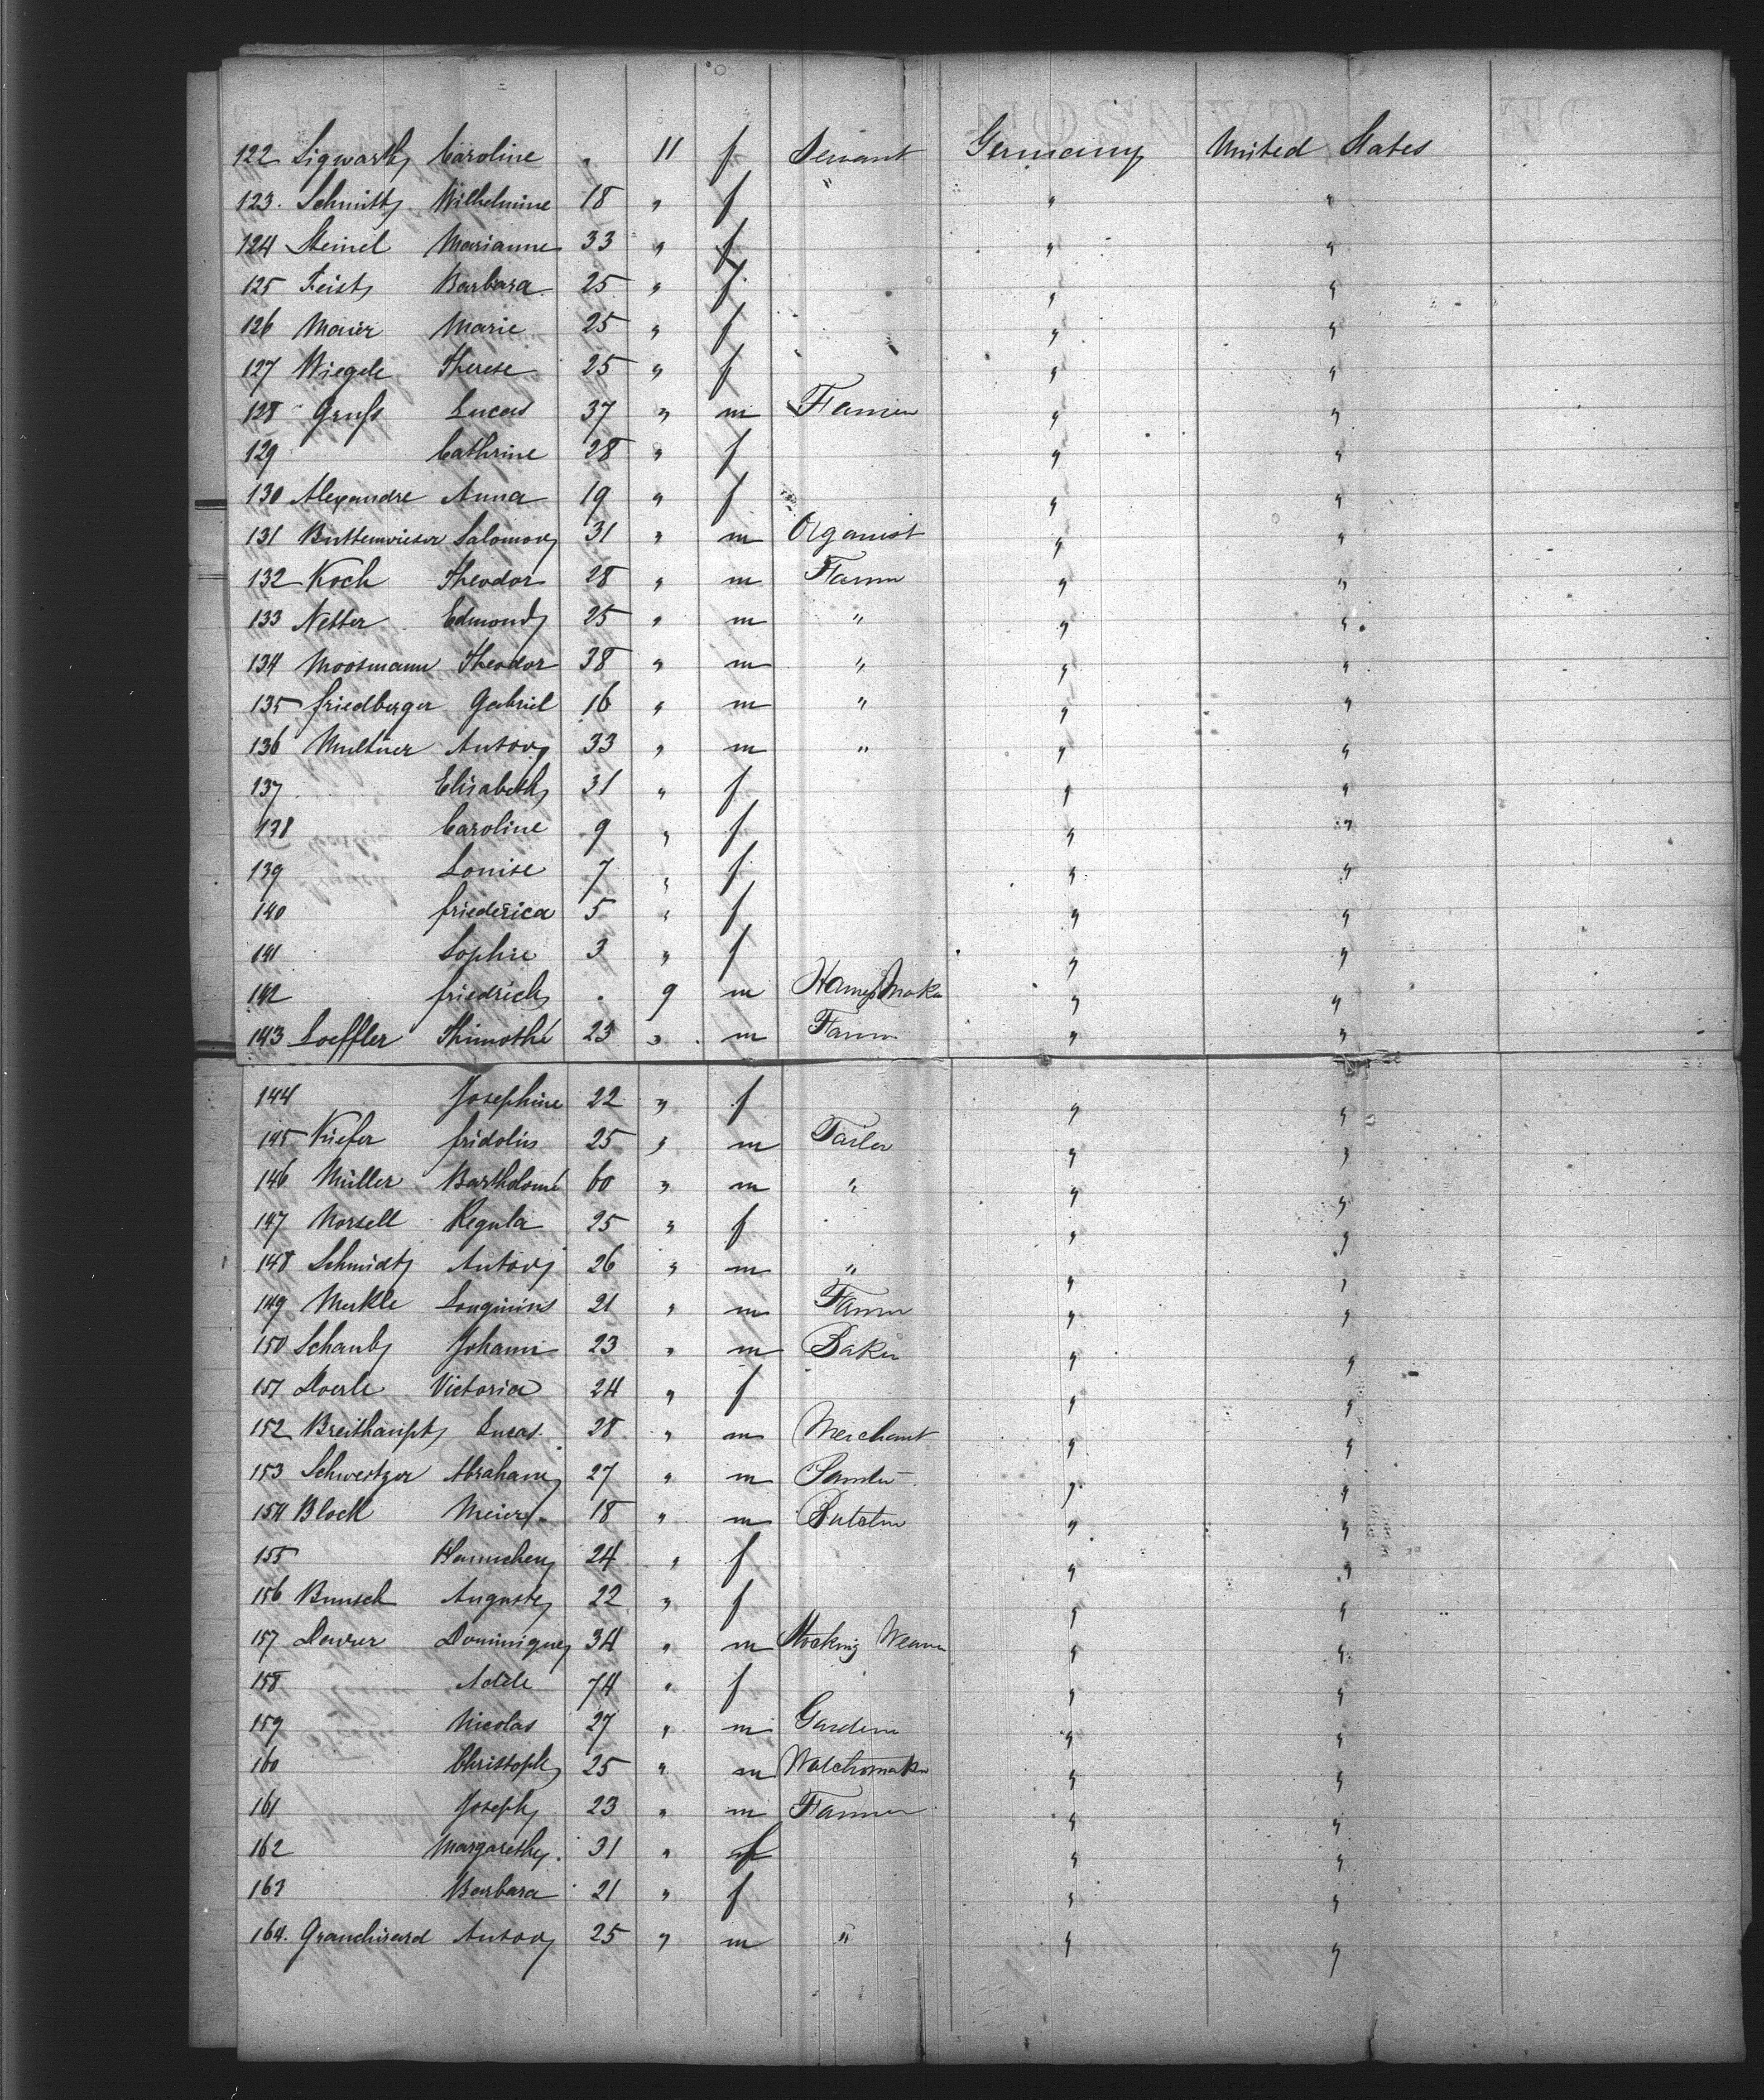 122 Sigwarth Caroline " 11 f Servant Germany United States
123. Schmitt Wilhelmine 18 " f " " "
124 Steinel Marianne 33 " f " "
125 Feist Barbara 25 " f " "
126 Maier Marie 25 " f " "
127 Wiegele Therese 25 " f " "
128 Gruß Lucas 37 " m Farmer " "
129 Cathrine 28 " f " "
130 Alexandre Anna 19 " f " "
131 Buttenwieser Salomon 31 " m Organist " "
132 Koch Theodor 28 " m Farmer " "
133 Netter Edmond 25 " m " " "
134 Moosmann Theodor 38 " m " " "
135 Friedberger Gabriel 16 " m " " "
136 Anton 33 " m " " "
137 Elisabeth 31 " f " "
138 Caroline 9 " f " "
139 Louise 7 " f " "
140 Friederica 5 " f " "
141 Sophie 3 " f " "
142 Friedrich . 9 m " "
143 Loeffler Thimothé 23 " m Farmer " "
144 Josephine 22 " f " "
145 Kiefer Fridolin 25 " m Tailer " "
146 Müller Bartholomé 60 " m " " "
147 Morsell Regula 25 " f " "
148 Schmidt Anton 26 " m " " "
149 Merkle Longinius 21 " m Farmer " "
150 Schaub Johann 23 " m Baker " "
151 Doerle Victoria 24 " f " "
152 Breithaupt Lucas 28 " m Merchant " "
153 Schweitzer Abraham 27 " m " "
154 Block Meier 18 " m Butcher " "
155 Hannchen 24 " f " "
156 Bunsch Auguste 22 " f " "
157 Deurer Dominique 34 " m Stocking Weaver " "
158 Adèle 74 " f " "
159 Nicolas 27 " m Gardener " "
160 Christoph 25 " m Watchmaker " "
161 Joseph 23 " m Farmer " "
162 Margareth 31 " f " "
163 Barbara 21 " f " "
164. Grandgirard Anton 25 " m " " "